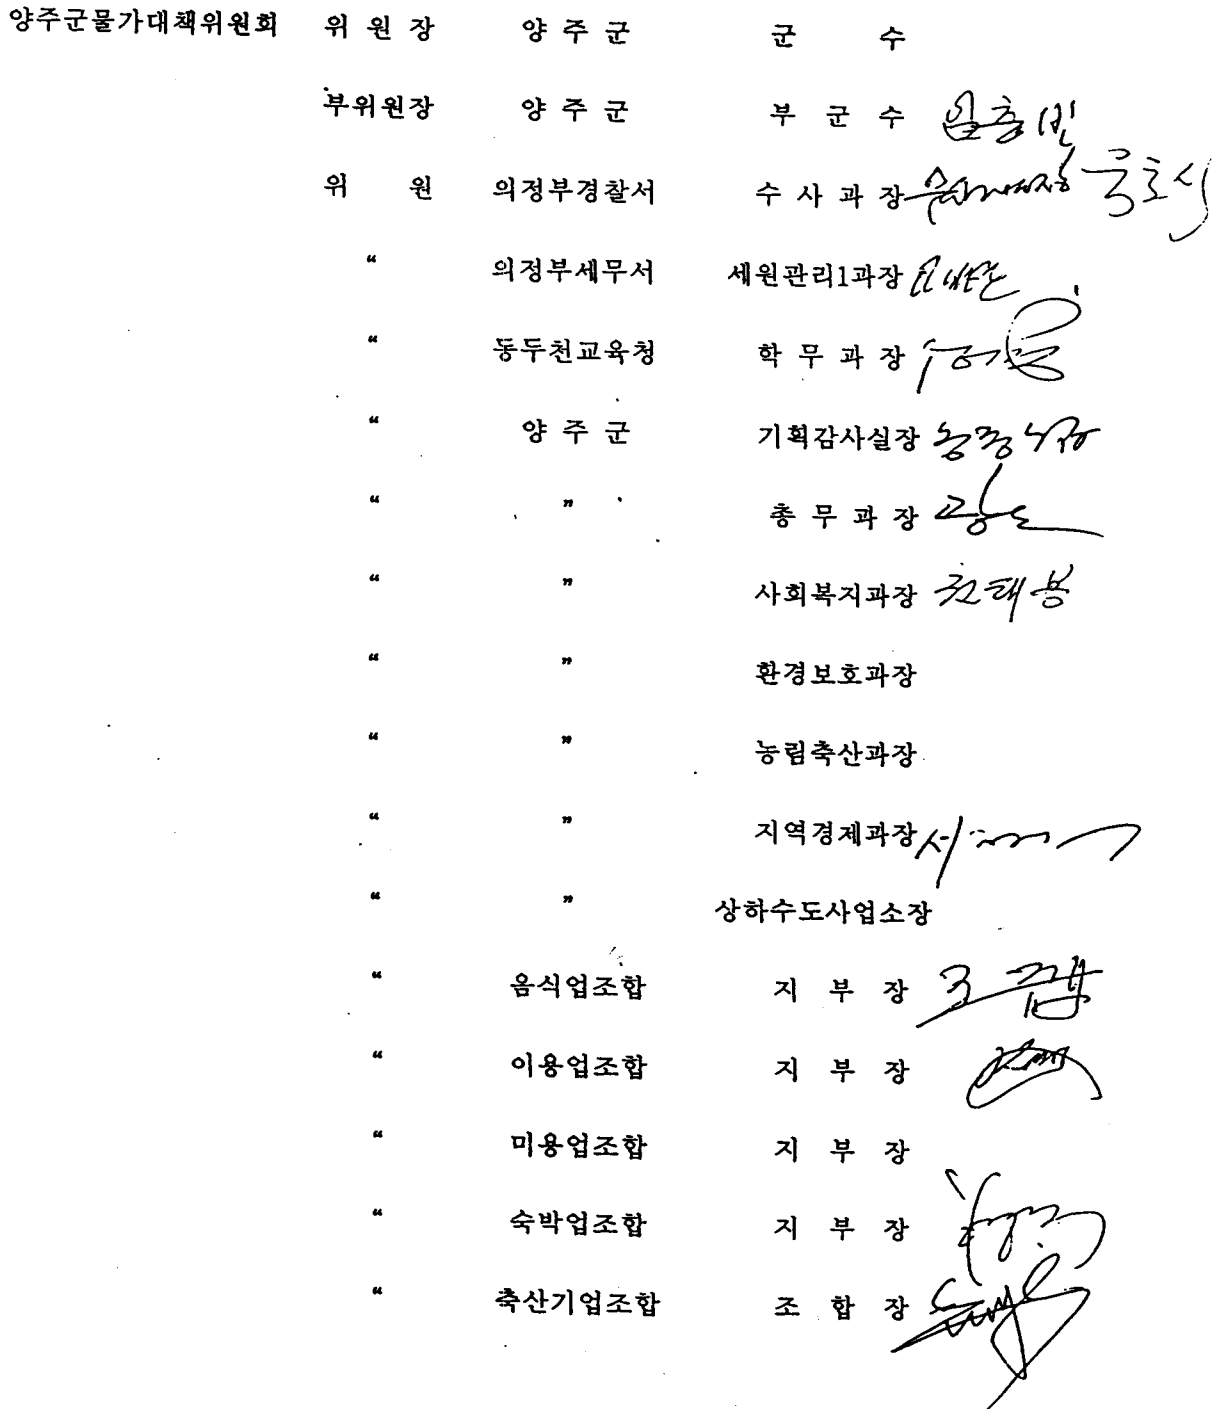 양주군물가대책위원회 위 원 장 양 주 군 군 수
부위원장 양 주 군 부 군 수 임충빈
위 원 의정부경찰서 수 사 과 장
“ 의정부세무서 세원관리1과장
“ 동두천교육청 학 무 과 장
“ 양 주 군 기획감사실장
“ ” 총 무 과 장
“ ” 사회복지과장
“ ” 환경보호과장
“ ” 농림축산과장
“ ” 지역경제과장
“ ” 상하수도사업소장
“ 음식업조합 지 부 장
“ 이용업조합 지 부 장
“ 미용업조합 지 부 장
“ 숙박업조합 지 부 장
“ 축산기업조합 조 합 장